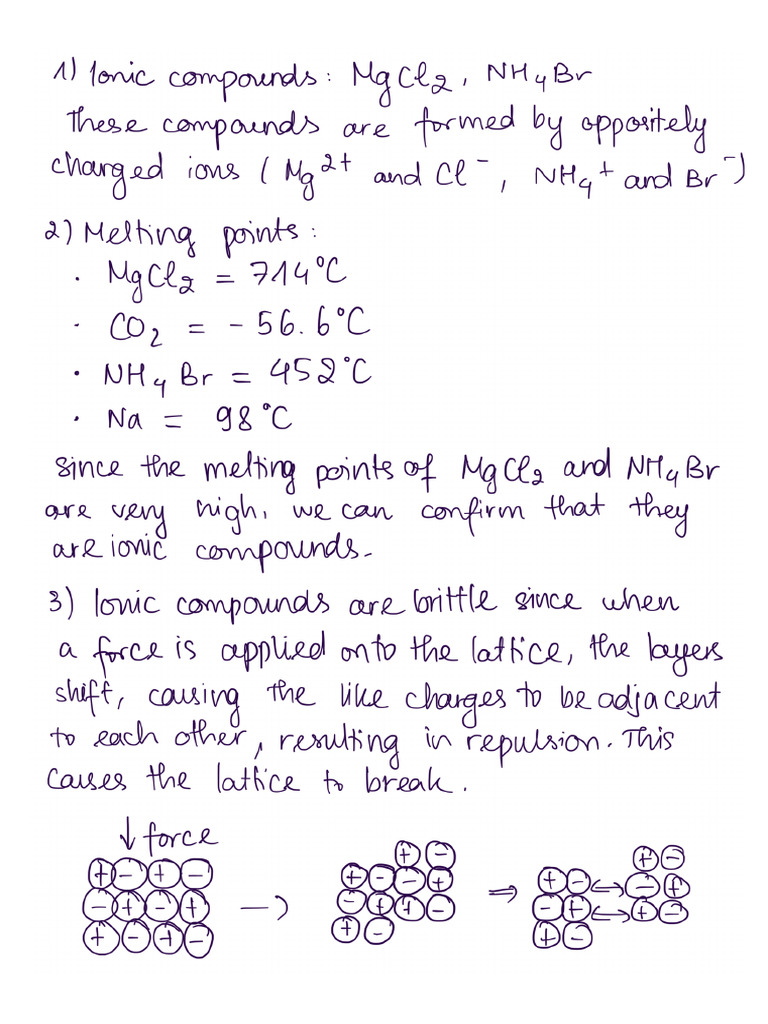 1) Ionic compounds: MgCl2, NH4Br
These compounds are formed by oppositely
charged ions (Mg2+ and Cl-, NH4+ and Br-)
2) Melting points:
· MgCl2 = 714°C
· CO2 = -56.6°C
· NH4Br = 452°C
· Na = 98°C
Since the melting points of MgCl2 and NH4Br
are very high, we can confirm that they
are ionic compounds.
3) Ionic compounds are brittle since when
a force is applied onto the lattice, the layers
shift, causing the like charges to be adjacent
to each other, resulting in repulsion. This
causes the lattice to break.
↓ force
+ - + -
- + - +
+ - + -
→
+ -
+ - - +
- + + -
+ -
⇒
+ -
+ - ↔ - +
- + ↔ + -
+ -